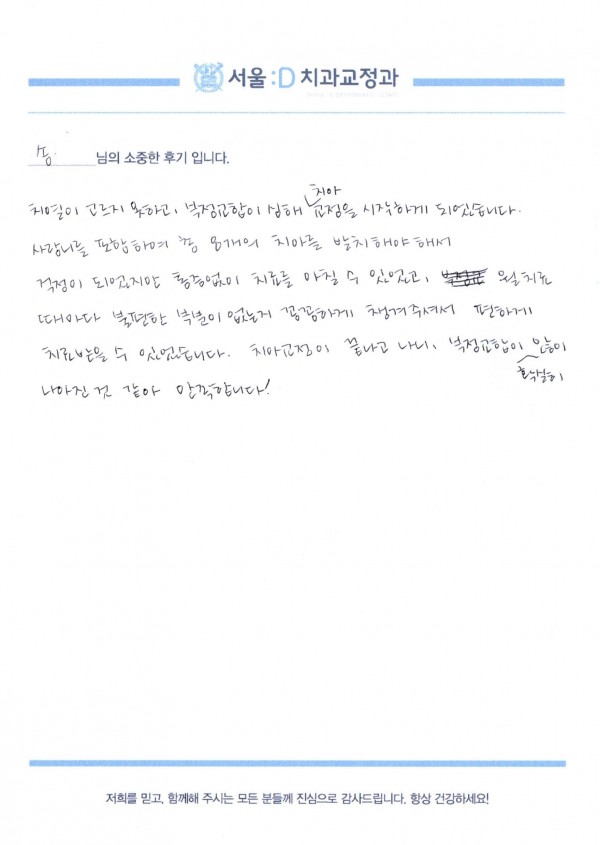 서울:D 치과교정과
송. 님의 소중한 후기 입니다.
치아
치열이 고르지 못하고, 부정교합이 심해 교정을 시작하게 되었습니다.
사랑니를 포함하여 총 8개의 치아를 발치해야해서
걱정이 되었지만 통증없이 치료를 마칠 수 있었고, 월치료
때마다 불편한 부분이 없는지 꼼꼼하게 챙겨주셔서 편하게
치료받을 수 있었습니다. 치아교정이 끝나고 나니, 부정교합이 많이
확실히
나아진 것 같아 만족합니다!
저희를 믿고, 함께해 주시는 모든 분들께 진심으로 감사드립니다. 항상 건강하세요!